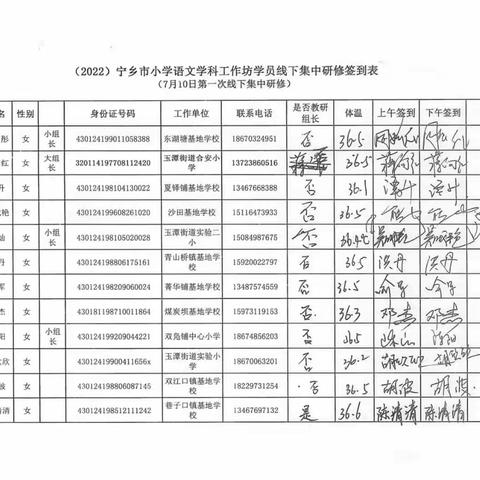 （2022）宁乡市小学语文学科工作坊学员线下集中研修签到表
（7月10日第一次线下集中研修）
名 性别 身份证号码 工作单位 联系电话 是否教研组长 体温 上午签到 下午签到
彤 女 小组长 430124199011058388 东湖塘基地学校 18670324951 否 36.5
红 女 大组长 320114197708112420 玉潭街道合安小学 13723860516 36.5
丹 女 430124198104130022 夏铎铺基地学校 13467668388 否 36.1
艳 女 430124199608261020 沙田基地学校 15116473933 否 36.5
灿 女 小组长 430124198105020028 玉潭街道实验二小 15084987675 否
丹 女 430124198806175161 青山桥镇基地学校 15920022797 否 36.5 洪丹 洪丹
军 女 430124198209060024 菁华铺基地学校 13487574559 否 36.5
杰 女 430181198710011864 煤炭坝基地学校 15973119153 否 36.3 邓杰 邓杰
阳 女 小组长 430124199209044221 双凫铺中心小学 18674856203 否 36.5
欣 女 43012419900411656x 玉潭街道实验小学 18670063201 否 36.2
波 女 430124198806087145 双江口镇基地学校 18229731254 否 36.5 胡波 胡波
清清 女 430124198512111242 巷子口镇基地学校 13467697132 是 36.6 陈清清 陈清清